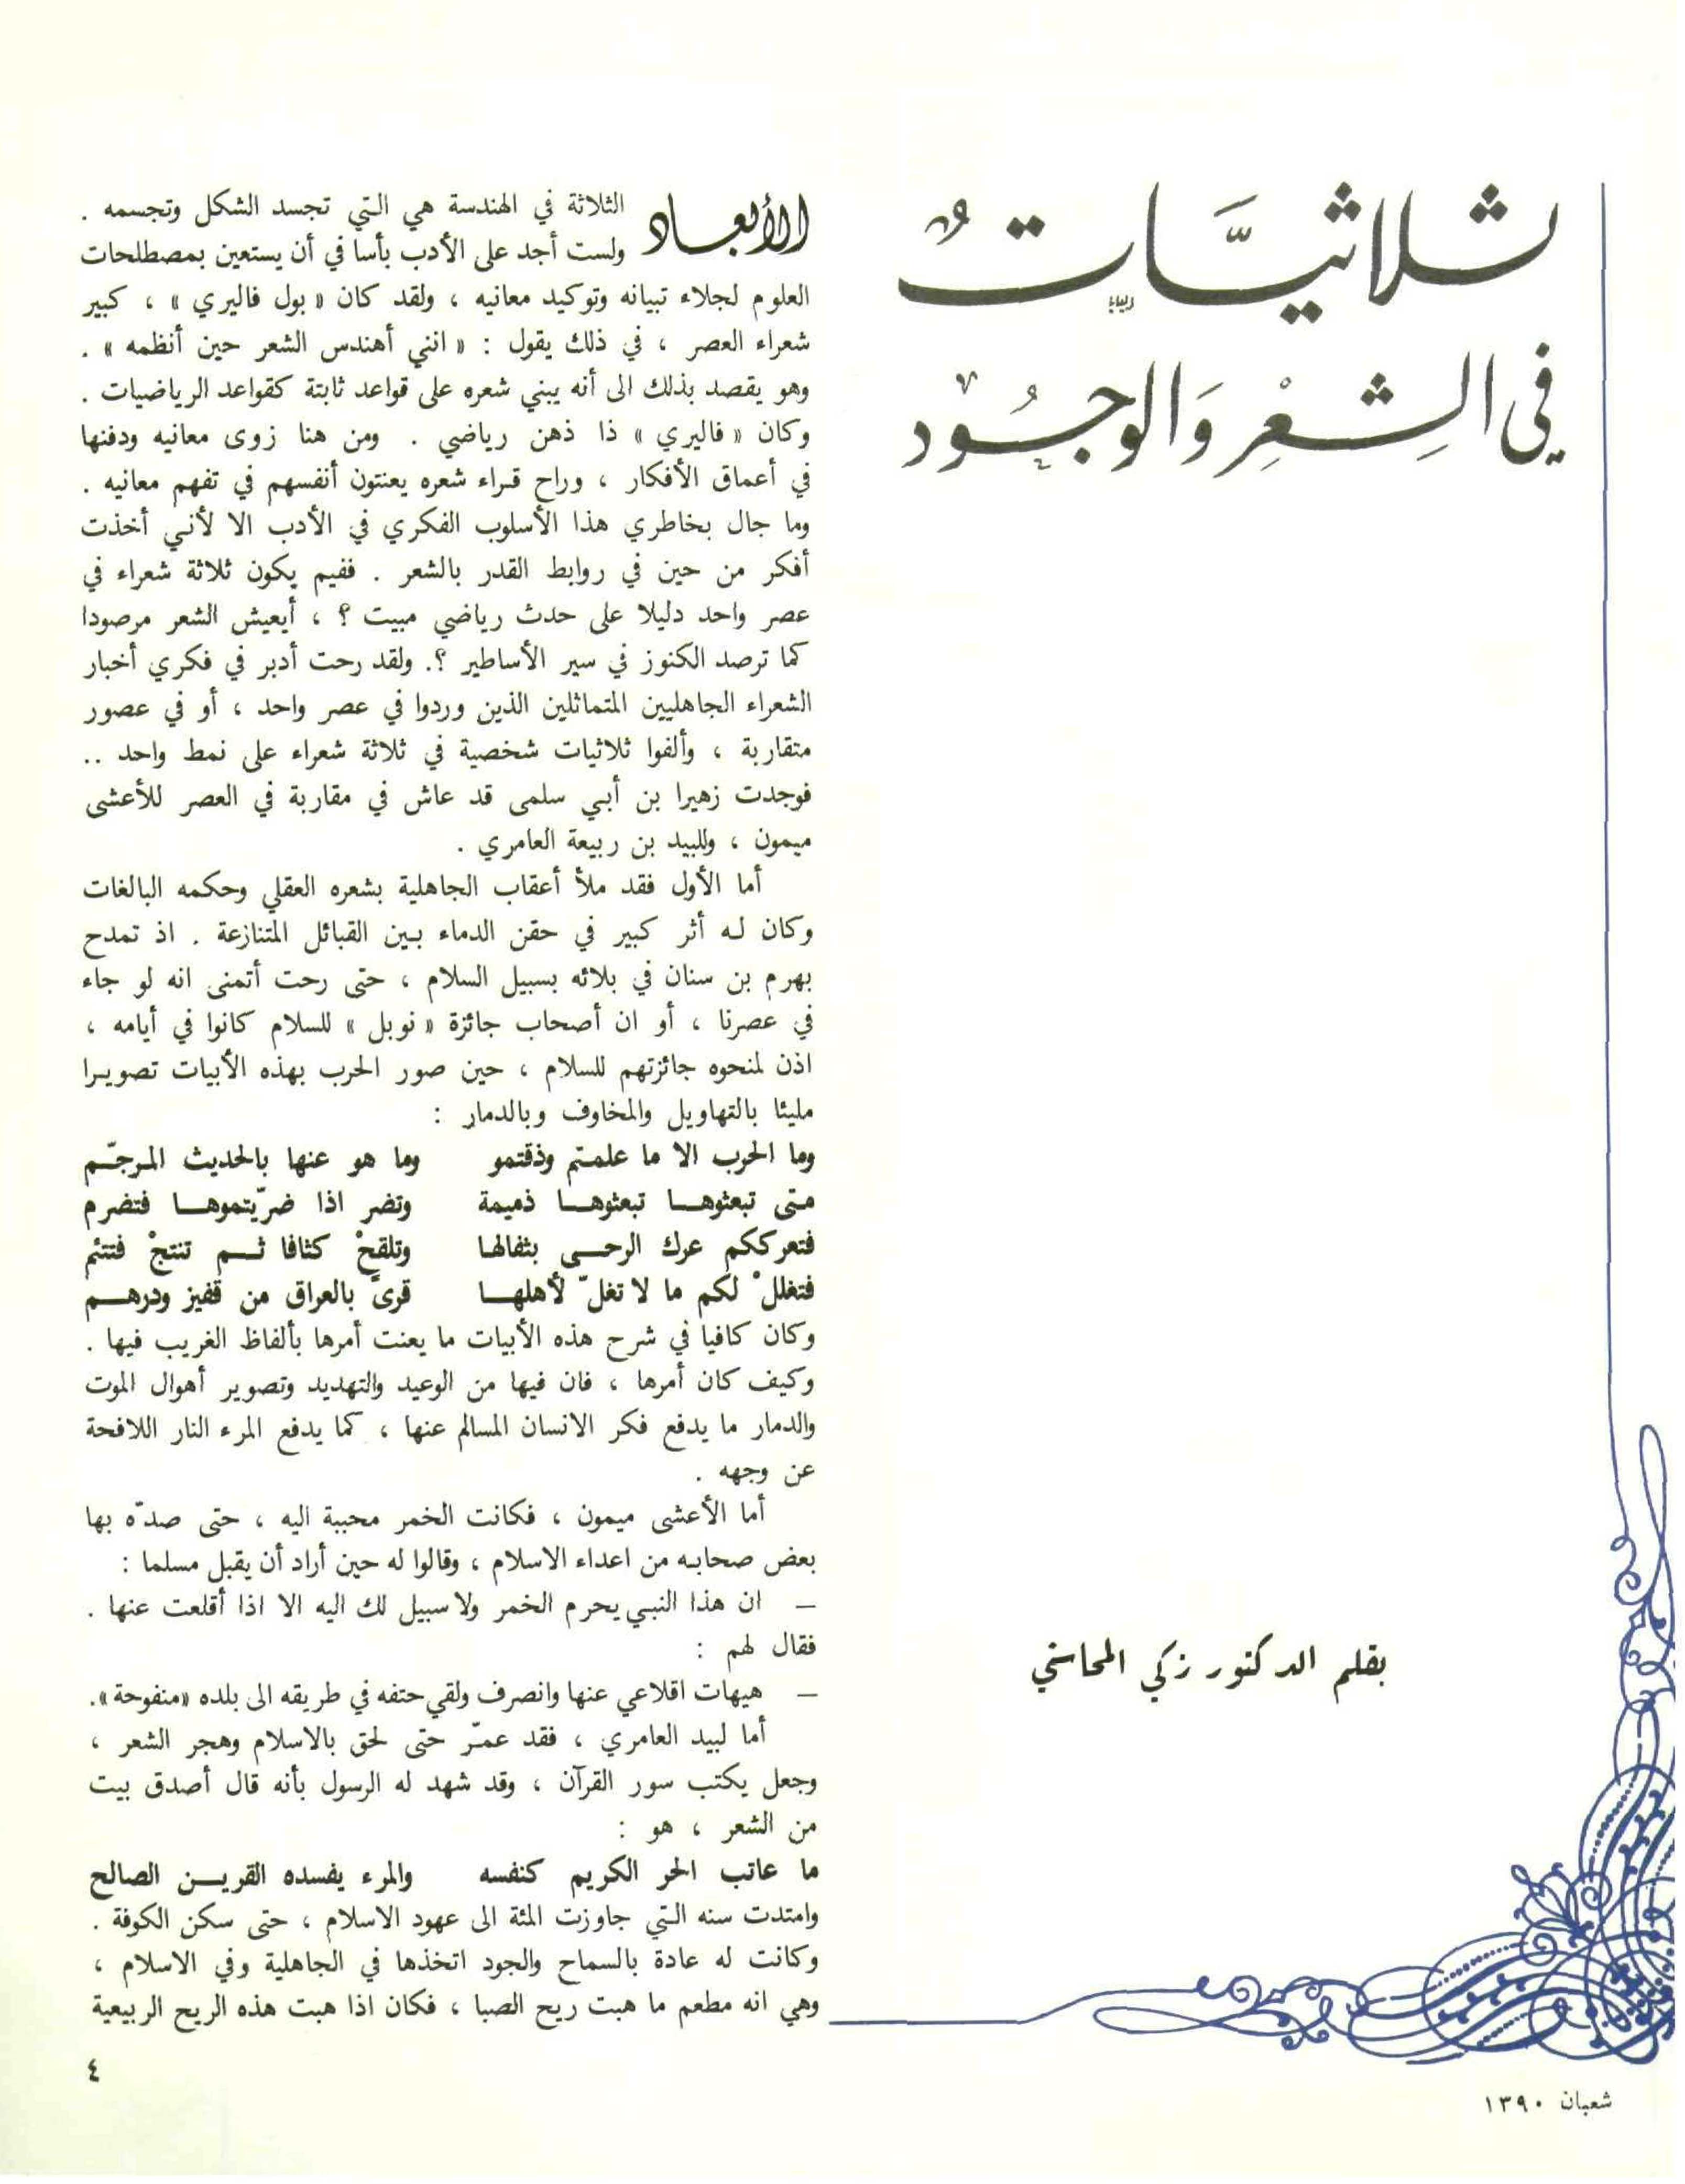 ثلاثيَّاتٌ
في الشِعْر وَالوجُود
بقلم الدكتور زكي المحاسني
الأبعاد الثلاثة في الهندسة هي التي تجسد الشكل وتجسمه .
ولست أجد على الأدب بأسا في أن يستعين بمصطلحات
العلوم لجلاء تبيانه وتوكيد معانيه ، ولقد كان « بول فاليري » ، كبير
شعراء العصر ، في ذلك يقول : « انني أهندس الشعر حين أنظمه » .
وهو يقصد بذلك الى أنه يبني شعره على قواعد ثابتة كقواعد الرياضيات .
وكان « فاليري » ذا ذهن رياضي . ومن هنا زوى معانيه ودفنها
في أعماق الأفكار ، وراح قراء شعره يعنتون أنفسهم في تفهم معانيه .
وما جال بخاطري هذا الأسلوب الفكري في الأدب الا لأنني أخذت
أفكر من حين في روابط القدر بالشعر . ففيم يكون ثلاثة شعراء في
عصر واحد دليلا على حدث رياضي مبيت ؟ ، أيعيش الشعر مرصودا
كما ترصد الكنوز في سير الأساطير ؟. ولقد رحت أدبر في فكري أخبار
الشعراء الجاهليين المتماثلين الذين وردوا في عصر واحد ، أو في عصور
متقاربة ، وألفوا ثلاثيات شخصية في ثلاثة شعراء على نمط واحد ..
فوجدت زهيرا بن أبي سلمى قد عاش في مقاربة في العصر للأعشى
ميمون ، وللبيد بن ربيعة العامري .
أما الأول فقد ملأ أعقاب الجاهلية بشعره العقلي وحكمه البالغات
وكان له أثر كبير في حقن الدماء بين القبائل المتنازعة . اذ تمدح
بهرم بن سنان في بلائه بسبيل السلام ، حتى رحت أتمنى انه لو جاء
في عصرنا ، أو ان أصحاب جائزة « نوبل » للسلام كانوا في أيامه ،
اذن لمنحوه جائزتهم للسلام ، حين صور الحرب بهذه الأبيات تصويرا
مليئا بالتهاويل والمخاوف وبالدمار :
وما الحرب الا ما علمتم وذقتمو وما هو عنها بالحديث المرجّم
متى تبعثوها تبعثوها ذميمة وتضر اذا ضرّيتموها فتضرم
فتعرككم عرك الرحى بثفالها وتلقحْ كثافا ثم تنتجْ فتتئم
فتغللْ لكم ما لا تغلّ لأهلها قرىً بالعراق من قفيز ودرهم
وكان كافيا في شرح هذه الأبيات ما يعنت أمرها بألفاظ الغريب فيها .
وكيف كان أمرها ، فان فيها من الوعيد والتهديد وتصوير أهوال الموت
والدمار ما يدفع فكر الانسان المسالم عنها ، كما يدفع المرء النار اللافحة
عن وجهه .
أما الأعشى ميمون ، فكانت الخمر محببة اليه ، حتى صدّه بها
بعض صحابه من اعداء الاسلام ، وقالوا له حين أراد أن يقبل مسلما :
– ان هذا النبي يحرم الخمر ولا سبيل لك اليه الا اذا أقلعت عنها .
فقال لهم :
– هيهات اقلاعي عنها وانصرف ولقي حتفه في طريقه الى بلده «منفوحة».
أما لبيد العامري ، فقد عمّر حتى لحق بالاسلام وهجر الشعر ،
وجعل يكتب سور القرآن ، وقد شهد له الرسول بأنه قال أصدق بيت
من الشعر ، هو :
ما عاتب الحر الكريم كنفسه والمرء يفسده القرين الصالح
وامتدت سنه التي جاوزت المئة الى عهود الاسلام ، حتى سكن الكوفة .
وكانت له عادة بالسماح والجود اتخذها في الجاهلية وفي الاسلام ،
وهي انه مطعم ما هبت ريح الصبا ، فكان اذا هبت هذه الريح الربيعية
٤
شعبان ١٣٩٠